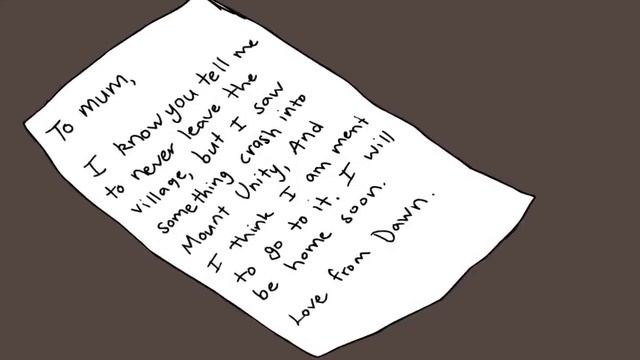 To mum,
I know you tell me
to never leave the
village, but I saw
something crash into
Mount Unity, And
I think I am ment
to go to it. I will
be home soon.
Love from Dawn.